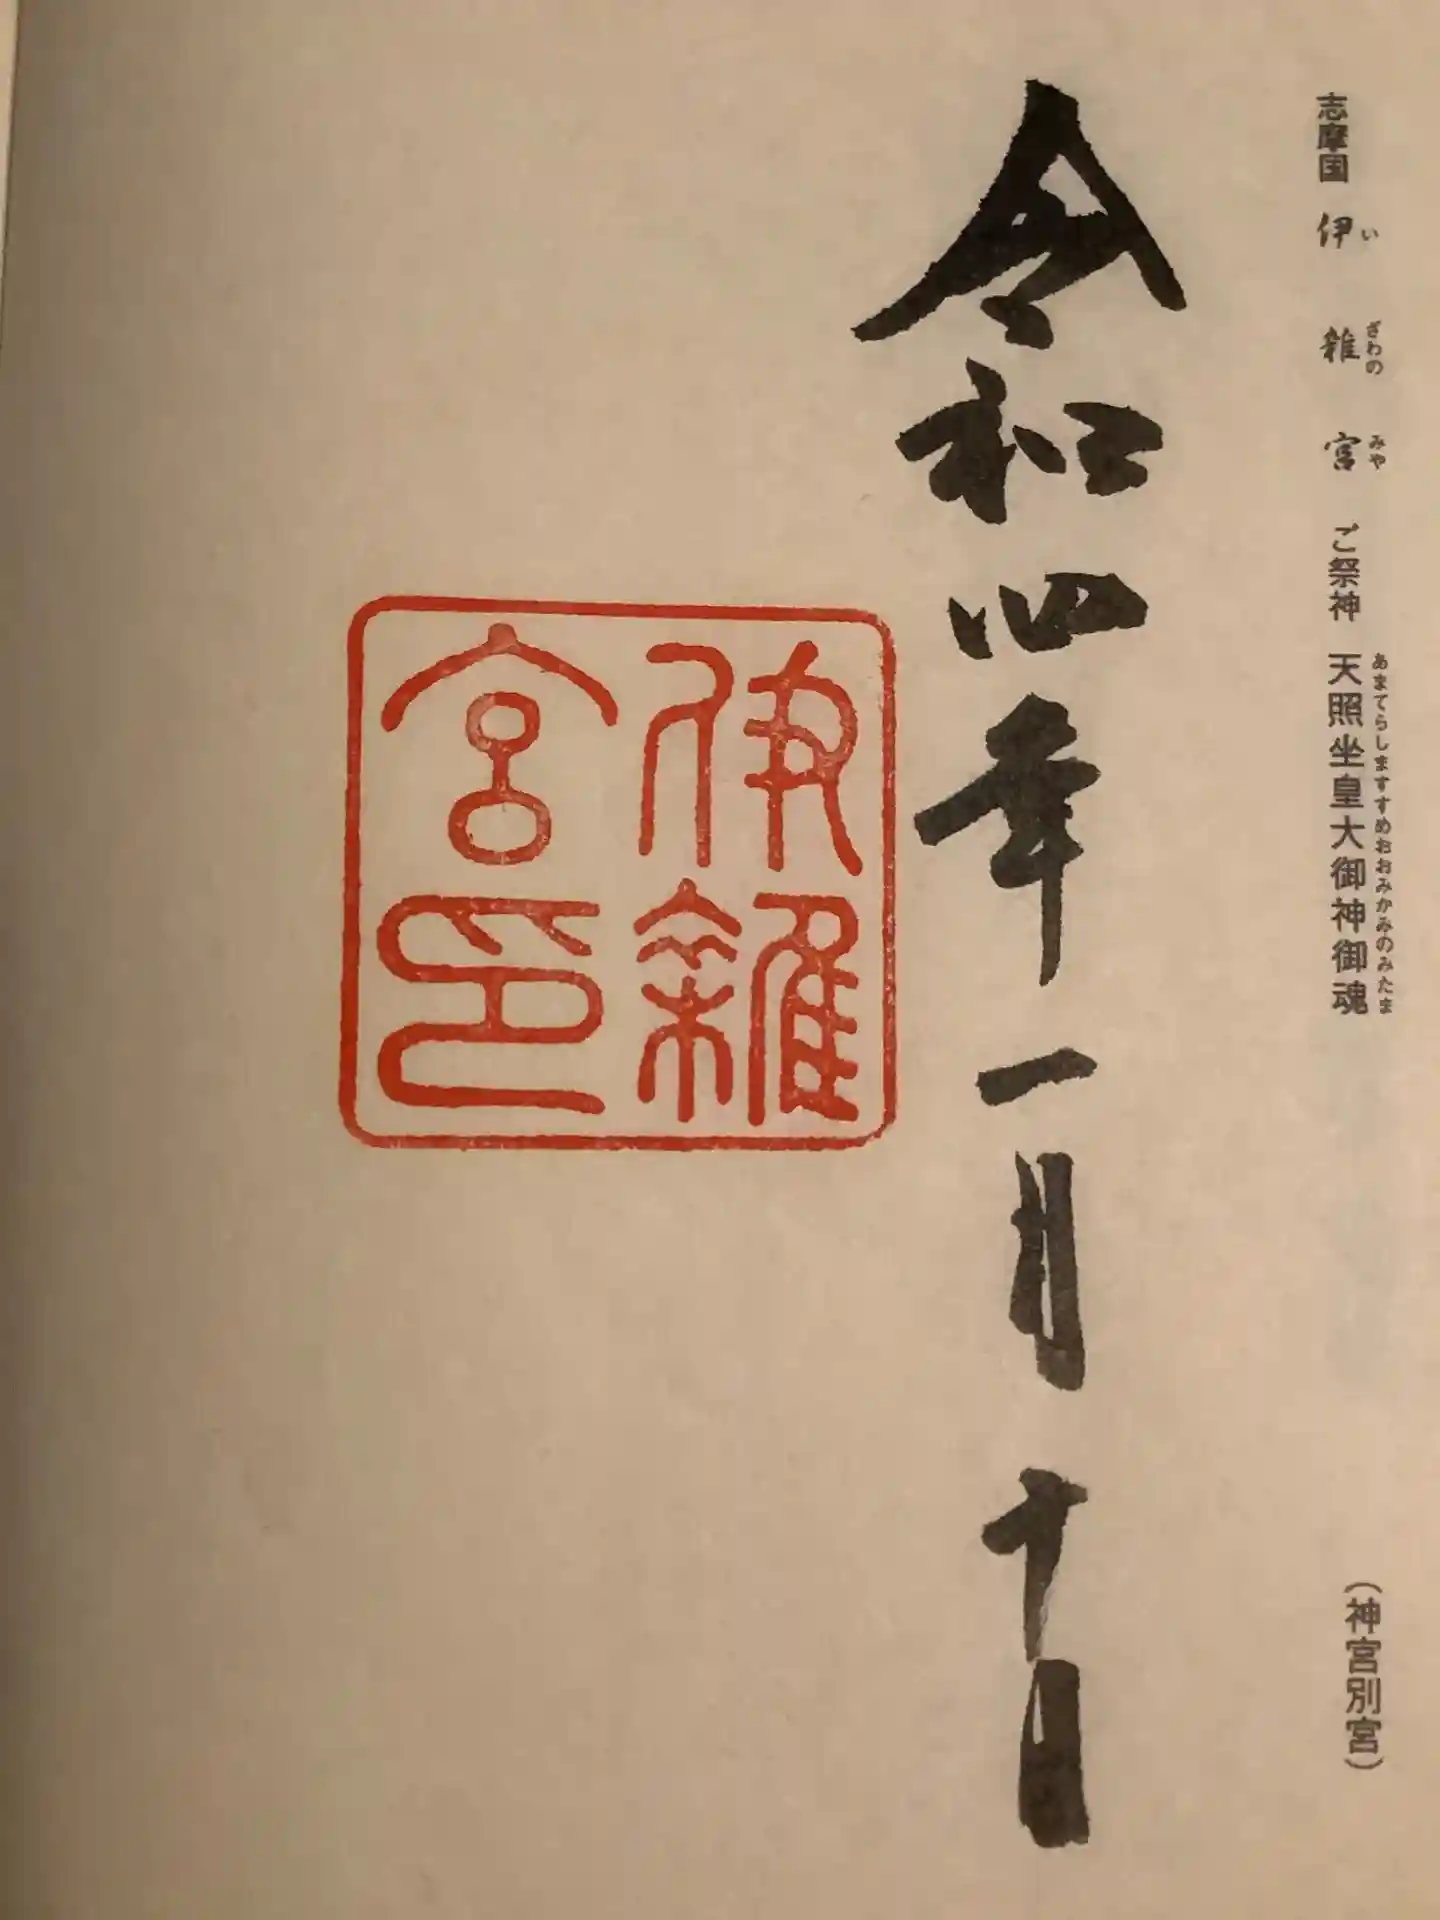 志摩国 伊雑宮 ご祭神 天照坐皇大御神御魂
い ざわの みや あまてらしますすめおおみかみのみたま
(神宮別宮)
令和四年一月十日
伊雑
宮印